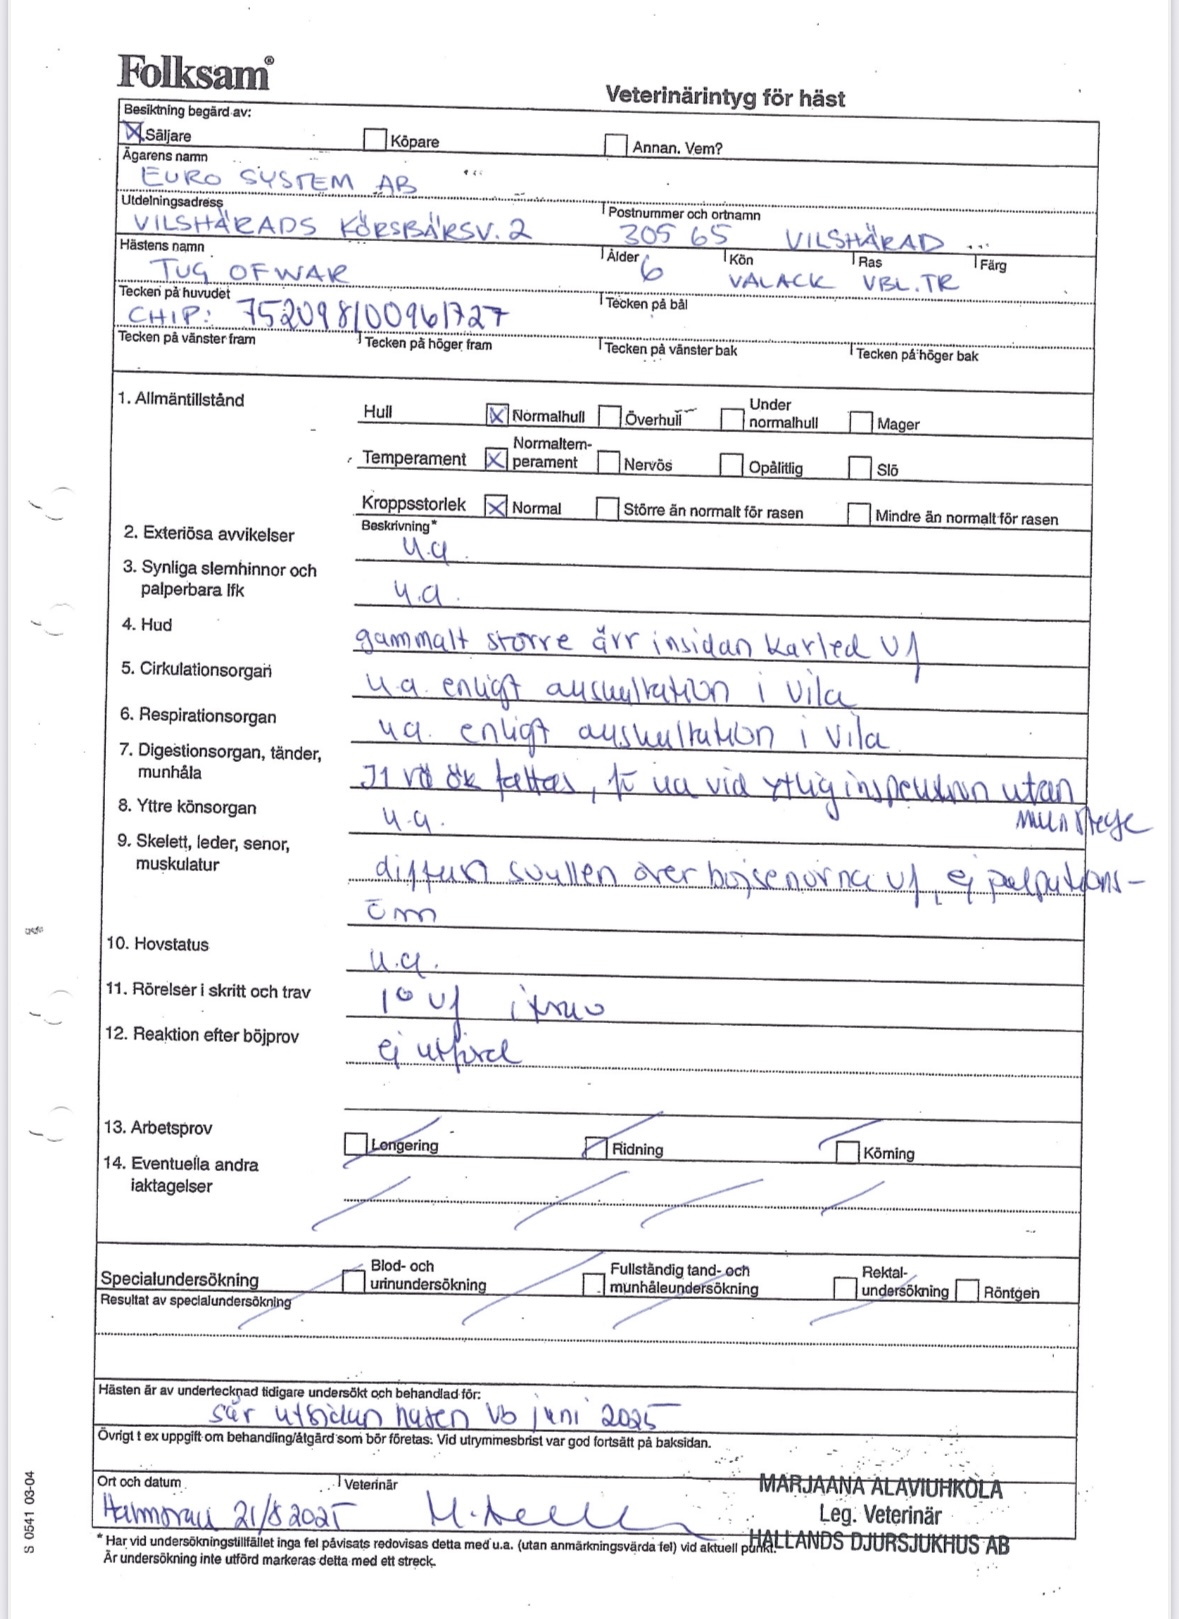 Folksam®
Veterinärintyg för häst
Besiktning begärd av:
Säljare Köpare Annan. Vem?
Ägarens namn
EURO SYSTEM AB
Utdelningsadress Postnummer och ortnamn
VILSHÄRADS KÖRSBÄRSV. 2 305 65 VILSHÄRAD
Hästens namn Ålder Kön Ras Färg
TUG OF WAR 6 VALACK VBL.TR
Tecken på huvudet Tecken på bål
CHIP: 752098100961727
Tecken på vänster fram Tecken på höger fram Tecken på vänster bak Tecken på höger bak
1. Allmäntillstånd
Hull Normalhull Överhull Under normalhull Mager
Temperament Normaltem-perament Nervös Opålitlig Slö
Kroppsstorlek Normal Större än normalt för rasen Mindre än normalt för rasen
Beskrivning*
2. Exteriösa avvikelser u.a
3. Synliga slemhinnor och
palperbara lfk u.a.
4. Hud gammalt större ärr insidan karled vf
5. Cirkulationsorgan u.a. enligt auskultation i vila
6. Respirationsorgan u.a. enligt auskultation i vila
7. Digestionsorgan, tänder,
munhåla fattas, ua vid ytlig inspektion utan
munstege
8. Yttre könsorgan u.a.
9. Skelett, leder, senor,
muskulatur diffust svullen över böjsenorna vf, ej palpations-
öm
10. Hovstatus u.a.
11. Rörelser i skritt och trav 1° vf i trav
12. Reaktion efter böjprov ej utförd
13. Arbetsprov Longering Ridning Körning
14. Eventuella andra
iaktagelser
Specialundersökning Blod- och urinundersökning Fullständig tand- och munhåleundersökning Rektal-undersökning Röntgen
Resultat av specialundersökning
Hästen är av undertecknad tidigare undersökt och behandlad för:
sår utsidan hasen vb juni 2025
Övrigt t ex uppgift om behandling/åtgärd som bör företas. Vid utrymmesbrist var god fortsätt på baksidan.
Ort och datum Veterinär
21/8 2025
MARJAANA ALAVIUHKOLA
Leg. Veterinär
HALLANDS DJURSJUKHUS AB
* Har vid undersökningstillfället inga fel påvisats redovisas detta med u.a. (utan anmärkningsvärda fel) vid aktuell punkt.
Är undersökning inte utförd markeras detta med ett streck.
S 0541 03-04